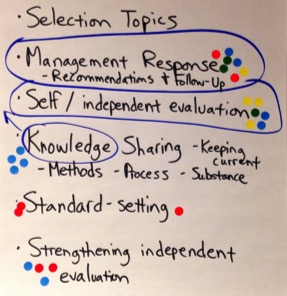 · Selection Topics
· Management Response
- Recommendations + Follow-Up
· Self / independent evaluation
· Knowledge Sharing - Keeping current
- Methods - Process - Substance
· Standard-setting
· Strengthening independent
evaluation